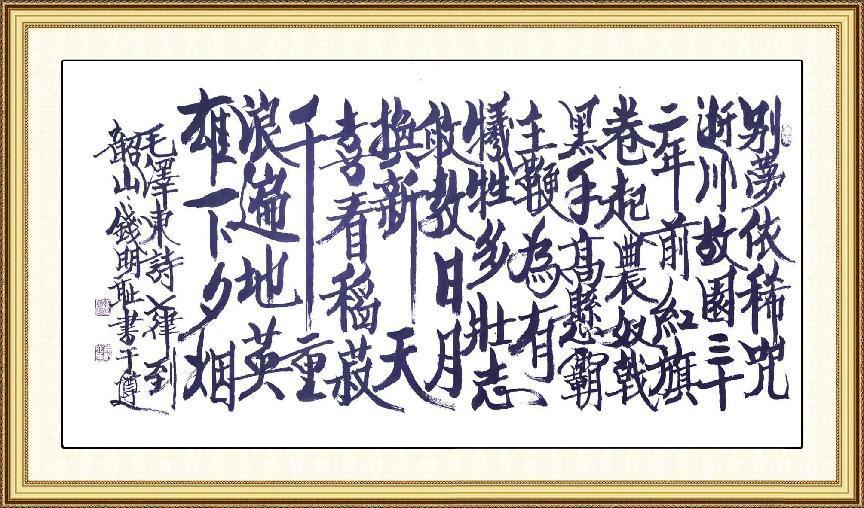 别夢依稀咒
逝川故園三十
二年前紅旗
卷起農奴戟
黑手高懸霸
主鞭為有
犧牲多壯志
敢教日月
換新天
喜看稻菽
千重
浪遍地英
雄下夕烟
毛澤東詩七律到
韶山錢明耻書于遵